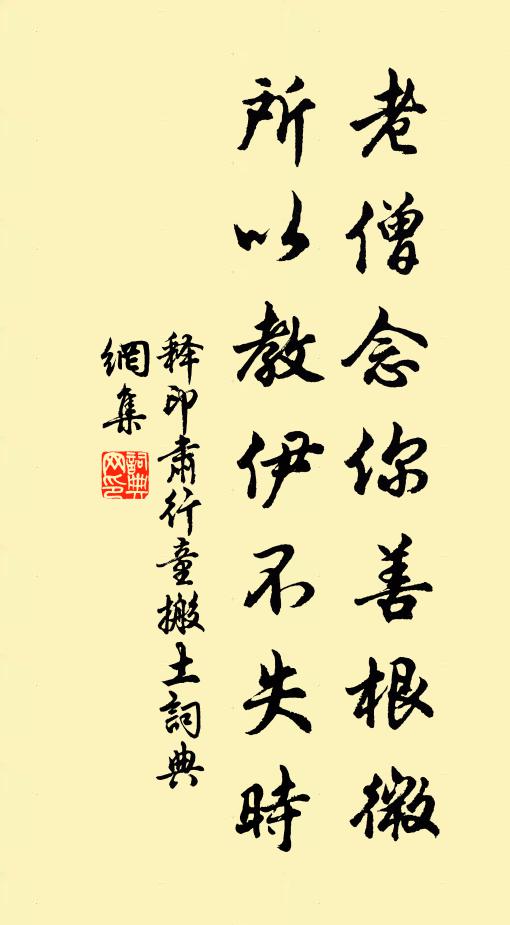 老僧念你善根微
所以教伊不失時
释印肃行童搬土詞典
網集
詞典网印